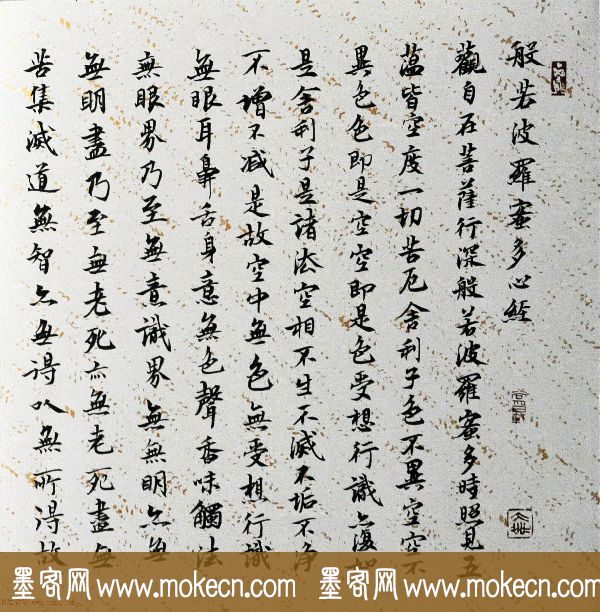 般若波羅蜜多心經
觀自在菩薩行深般若波羅蜜多時照見五
蕰皆空度一切苦厄舍利子色不異空空不
異色色即是空空即是色受想行識亦復如
是舍利子是諸法空相不生不滅不垢不净
不增不減是故空中無色無受想行識
無眼耳鼻舌身意無色聲香味觸法
無眼界乃至無意識界無無明亦無
無明盡乃至無老死亦無老死盡無
苦集滅道無智亦無得以無所得故
墨客网 www.mokecn.com 墨客网 www.mokecn.com